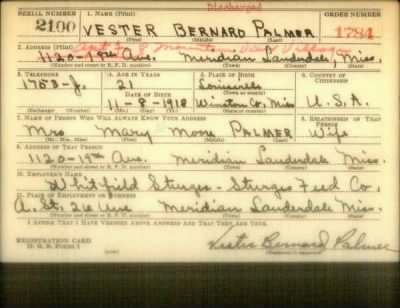 Discharged
SERIAL NUMBER 1. NAME (Print) ORDER NUMBER
2100 VESTER BERNARD PALMER 1784
(First) (Middle) (Last)
2. ADDRESS (Print) Apt. 8 Mountain View Village
1120-19th Ave. Meridian, Lauderdale, Miss.
(Number and street or R. F. D. number) (Town) (County) (State)
3. TELEPHONE 4. AGE IN YEARS 5. PLACE OF BIRTH 6. COUNTRY OF CITIZENSHIP
1753-J. 21 Louisville
DATE OF BIRTH
11-8-1918 Winston Co. Miss U.S.A.
(Exchange) (Number) (Mo.) (Day) (Yr.) (State or country)
7. NAME OF PERSON WHO WILL ALWAYS KNOW YOUR ADDRESS 8. RELATIONSHIP OF THAT PERSON
Mrs. Mary Moore PALMER Wife
(Mr., Mrs., Miss) (First) (Middle) (Last)
9. ADDRESS OF THAT PERSON
1120-19th Ave. Meridian Lauderdale Miss.
(Number and street or R. F. D. number) (Town) (County) (State)
10. EMPLOYER'S NAME
Whitfield Sturges - Sturges Feed Co.
11. PLACE OF EMPLOYMENT OR BUSINESS
A. St. 26 Ave Meridian Lauderdale Miss.
(Number and street or R. F. D. number) (Town) (County) (State)
I AFFIRM THAT I HAVE VERIFIED ABOVE ANSWERS AND THAT THEY ARE TRUE.
REGISTRATION CARD
D. S. S. FORM 1
Vester Bernard Palmer